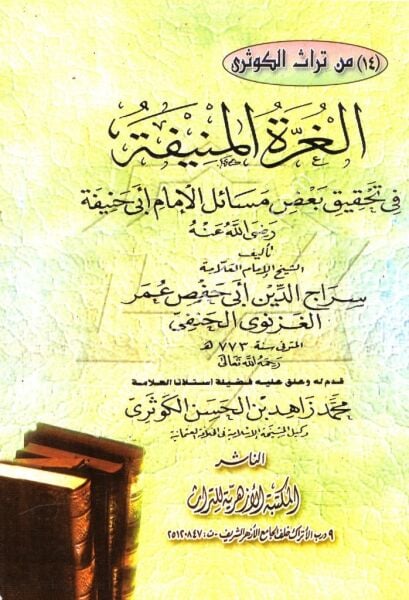 (١٤) من تراث الكوثرى
الغُرَّةُ المُنِيفَة
فِي تَحْقِيقِ بَعْضِ مَسَائِلِ الإِمَامِ أَبِي حَنِيفَة
رَضِيَ اللهُ عَنْهُ
تأليف
الشيخ الإمام العلامة
سراج الدين أبي حفص عمر
الغزنوى الحنفى
المتوفى سنة ٧٧٣ هـ
رحمه الله تعالى
قدم له وعلق عليه فضيلة أستاذنا العلامة
محمد زاهد بن الحسن الكوثرى
وكيل المشيخة الإسلامية في الخلافة العثمانية
الناشر
المكتبة الأزهرية للتراث
٩ درب الأتراك خلف الجامع الأزهر الشريف - ت: ٢٥١٢٠٨٤٧